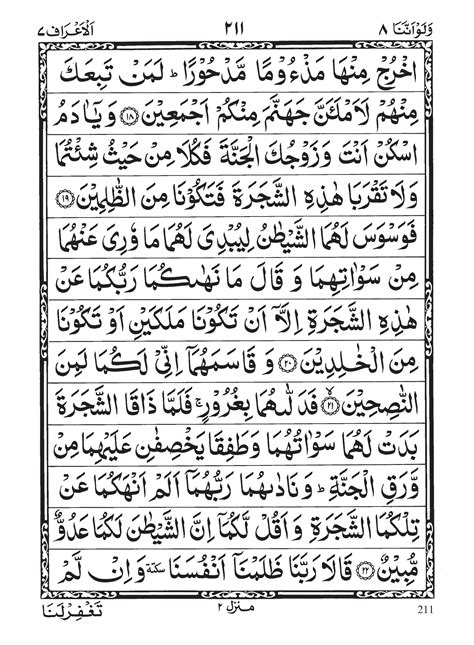 وَلَوْاَنَّنَا ٨ ٢١١ اَلْاَعْرَاف ٧
اخْرُجْ مِنْهَا مَذْءُوْمًا مَّدْحُوْرًا ؕ لَمَنْ تَبِعَكَ
مِنْهُمْ لَاَمْلَـَٔنَّ جَهَنَّمَ مِنْكُمْ اَجْمَعِيْنَ ١٨ وَيٰۤاٰدَمُ
اسْكُنْ اَنْتَ وَزَوْجُكَ الْجَنَّةَ فَكُلَا مِنْ حَيْثُ شِئْتُمَا
وَلَا تَقْرَبَا هٰذِهِ الشَّجَرَةَ فَتَكُوْنَا مِنَ الظّٰلِمِيْنَ ١٩
فَوَسْوَسَ لَهُمَا الشَّيْطٰنُ لِيُبْدِيَ لَهُمَا مَا وٗرِيَ عَنْهُمَا
مِنْ سَوْاٰتِهِمَا وَ قَالَ مَا نَهٰىكُمَا رَبُّكُمَا عَنْ
هٰذِهِ الشَّجَرَةِ اِلَّاۤ اَنْ تَكُوْنَا مَلَكَيْنِ اَوْ تَكُوْنَا
مِنَ الْخٰلِدِيْنَ ٢٠ وَ قَاسَمَهُمَاۤ اِنِّيْ لَكُمَا لَمِنَ
النّٰصِحِيْنَ ٢١ ۙ فَدَلّٰىهُمَا بِغُرُوْرٍ ۚ فَلَمَّا ذَاقَا الشَّجَرَةَ
بَدَتْ لَهُمَا سَوْاٰتُهُمَا وَطَفِقَا يَخْصِفٰنِ عَلَيْهِمَا مِنْ
وَّرَقِ الْجَنَّةِ ؕ وَ نَادٰىهُمَا رَبُّهُمَاۤ اَلَمْ اَنْهَكُمَا عَنْ
تِلْكُمَا الشَّجَرَةِ وَ اَقُلْ لَّكُمَاۤ اِنَّ الشَّيْطٰنَ لَكُمَا عَدُوٌّ
مُّبِيْنٌ ٢٢ قَالَا رَبَّنَا ظَلَمْنَاۤ اَنْفُسَنَا سكتة وَ اِنْ لَّمْ
211 منزل ٢ تَغْفِرْلَنَا